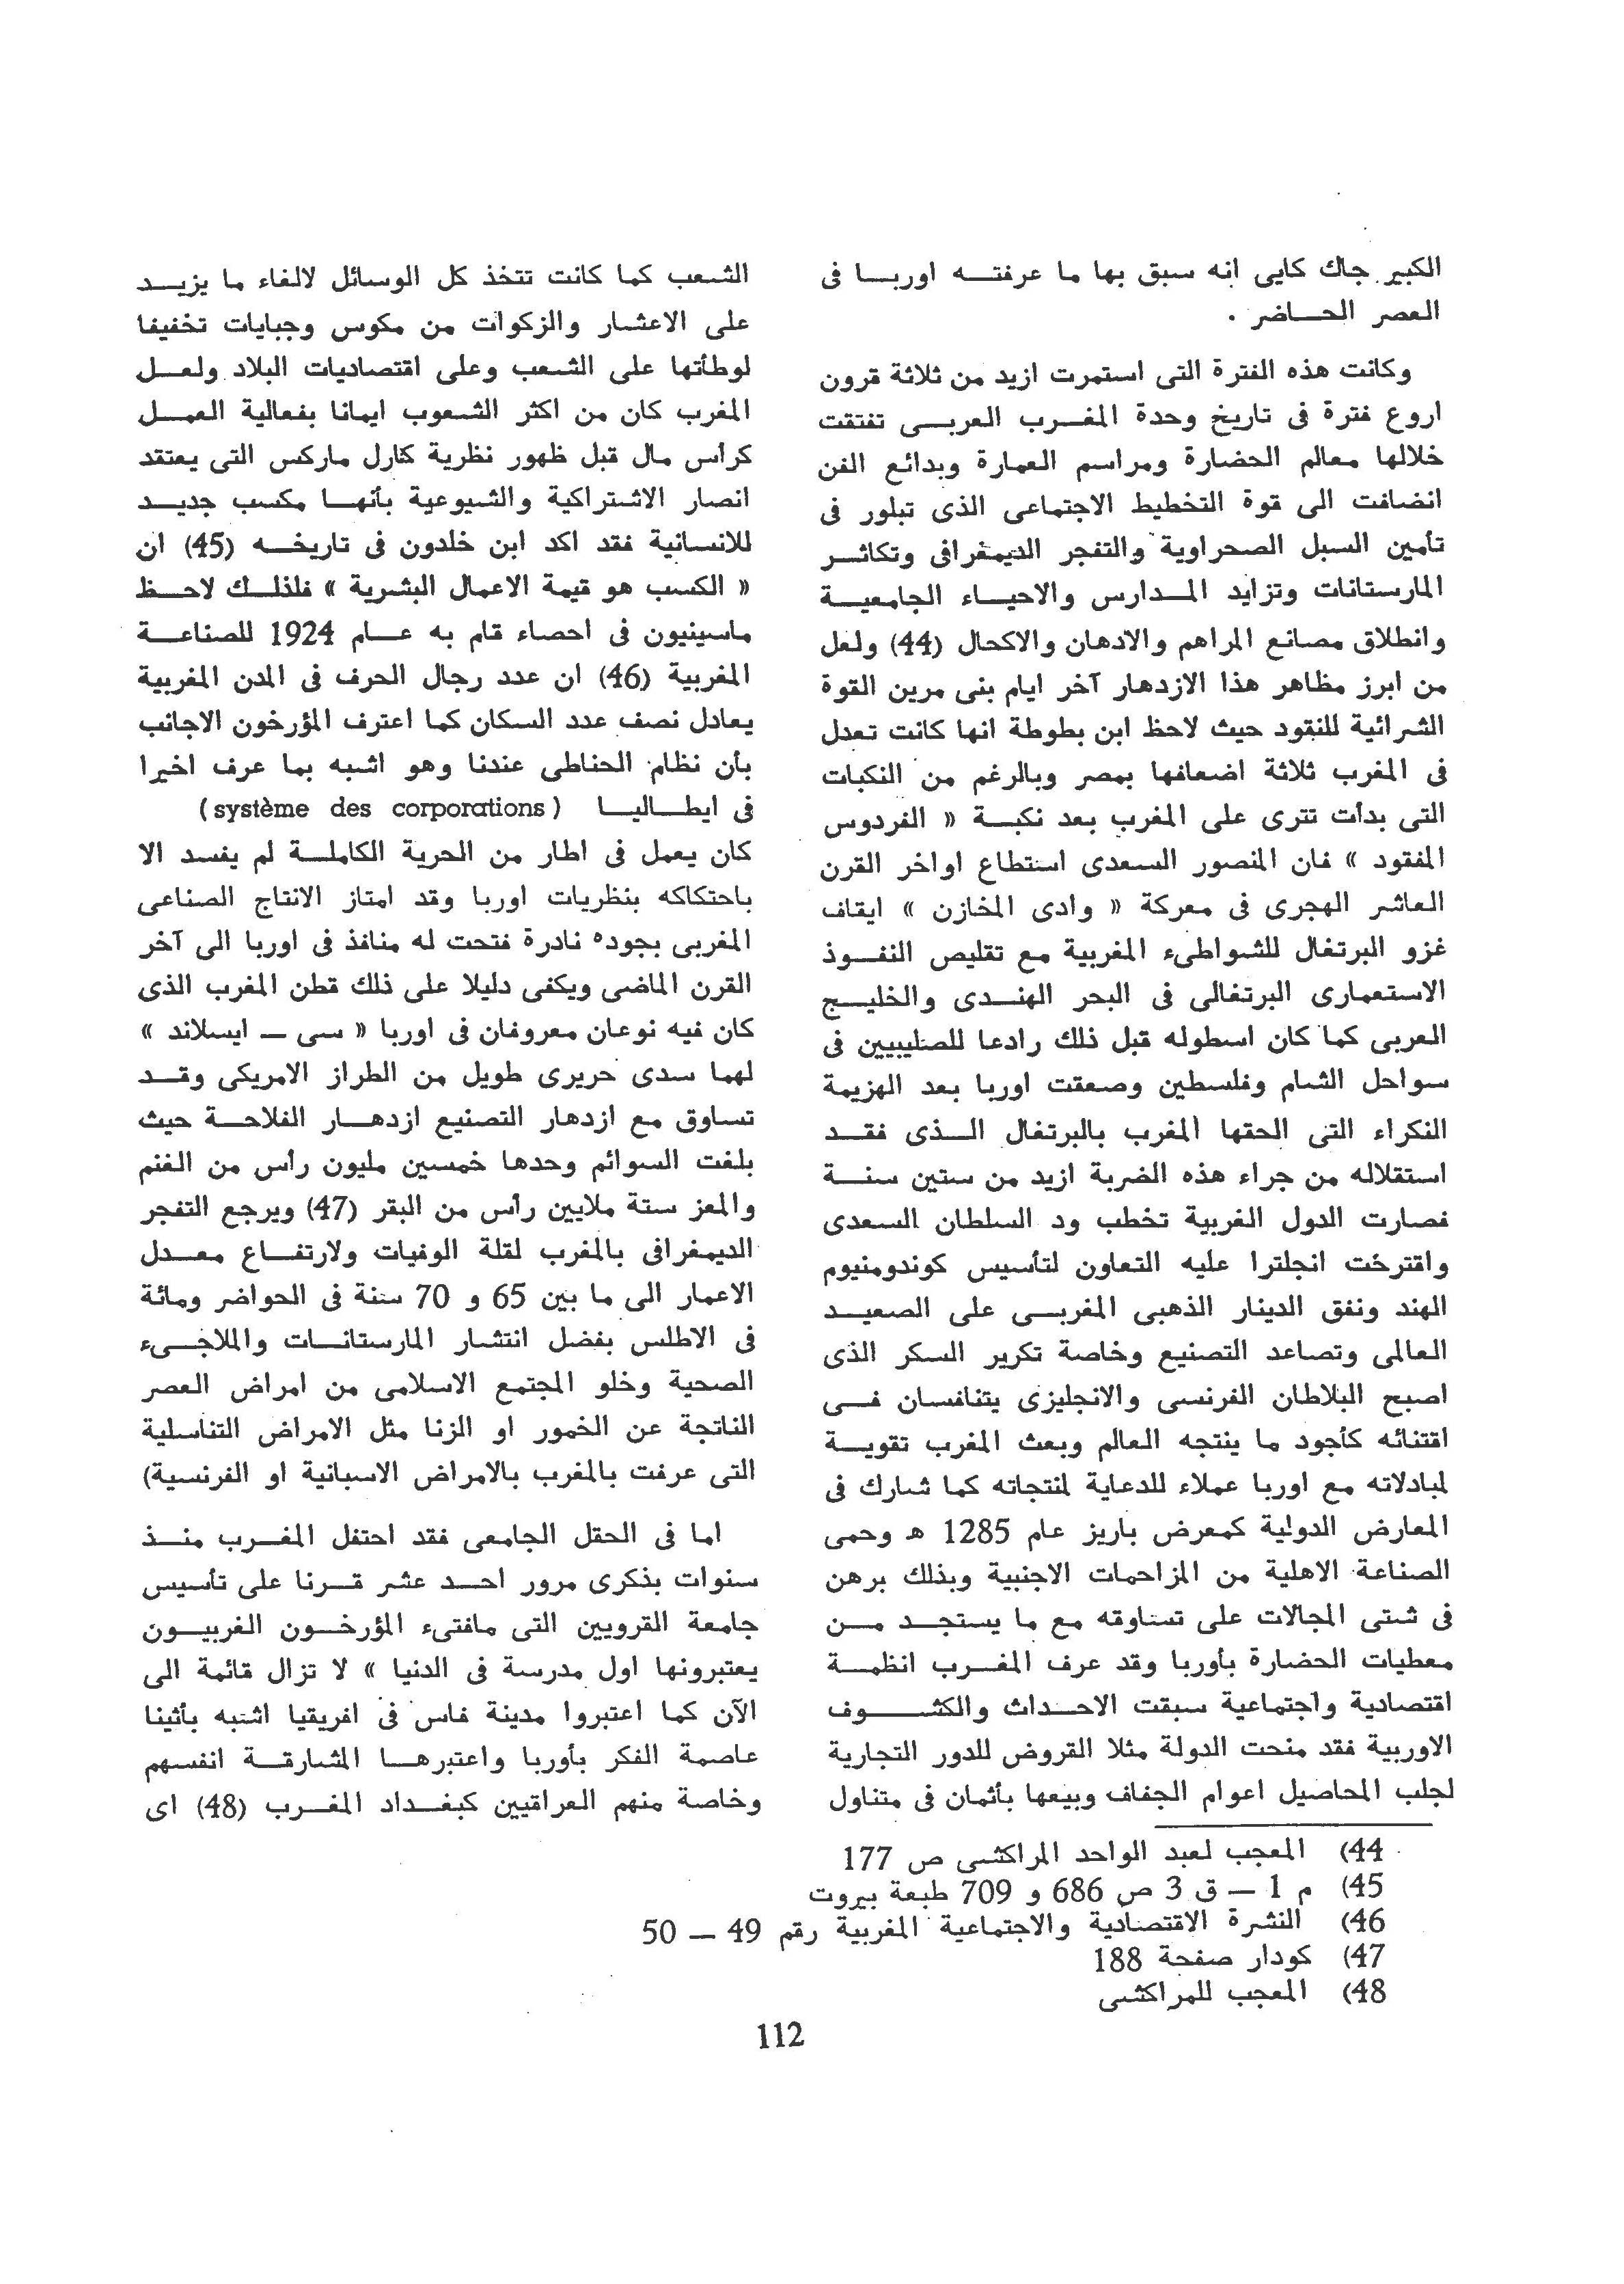 الكبير جاك كايى انه سبق بها ما عرفته اوربا فى
العصر الحاضر .
وكانت هذه الفترة التى استمرت ازيد من ثلاثة قرون
اروع فترة فى تاريخ وحدة المغرب العربى تفتقت
خلالها معالم الحضارة ومراسم العمارة وبدائع الفن
انضافت الى قوة التخطيط الاجتماعى الذى تبلور فى
تأمين السبل الصحراوية والتفجر الديمغرافى وتكاثر
المارستانات وتزايد المدارس والاحياء الجامعية
وانطلاق مصانع المراهم والادهان والاكحال (44) ولعل
من ابرز مظاهر هذا الازدهار آخر ايام بنى مرين القوة
الشرائية للنقود حيث لاحظ ابن بطوطة انها كانت تعدل
فى المغرب ثلاثة اضعافها بمصر وبالرغم من النكبات
التى بدأت تترى على المغرب بعد نكبة « الفردوس
المفقود » فان المنصور السعدى استطاع اواخر القرن
العاشر الهجرى فى معركة « وادى المخازن » ايقاف
غزو البرتغال للشواطىء المغربية مع تقليص النفوذ
الاستعمارى البرتغالى فى البحر الهندى والخليج
العربى كما كان اسطوله قبل ذلك رادعا للصليبيين فى
سواحل الشام وفلسطين وصعقت اوربا بعد الهزيمة
النكراء التى الحقها المغرب بالبرتغال الذى فقد
استقلاله من جراء هذه الضربة ازيد من ستين سنة
فصارت الدول الغربية تخطب ود السلطان السعدى
واقترحت انجلترا عليه التعاون لتأسيس كوندومنيوم
الهند ونفق الدينار الذهبى المغربى على الصعيد
العالمى وتصاعد التصنيع وخاصة تكرير السكر الذى
اصبح البلاطان الفرنسى والانجليزى يتنافسان فى
اقتنائه كأجود ما ينتجه العالم وبعث المغرب تقوية
لمبادلاته مع اوربا عملاء للدعاية لمنتجاته كما شارك فى
المعارض الدولية كمعرض باريز عام 1285 هـ وحمى
الصناعة الاهلية من المزاحمات الاجنبية وبذلك برهن
فى شتى المجالات على تساوقه مع ما يستجد من
معطيات الحضارة بأوربا وقد عرف المغرب انظمة
اقتصادية واجتماعية سبقت الاحداث والكشوف
الاوربية فقد منحت الدولة مثلا القروض للدور التجارية
لجلب المحاصيل اعوام الجفاف وبيعها بأثمان فى متناول
الشعب كما كانت تتخذ كل الوسائل لالغاء ما يزيد
على الاعشار والزكوات من مكوس وجبايات تخفيفا
لوطأتها على الشعب وعلى اقتصاديات البلاد ولعل
المغرب كان من اكثر الشعوب ايمانا بفعالية العمل
كرأس مال قبل ظهور نظرية كارل ماركس التى يعتقد
انصار الاشتراكية والشيوعية بأنها مكسب جديد
للانسانية فقد اكد ابن خلدون فى تاريخه (45) ان
« الكسب هو قيمة الاعمال البشرية » فلذلك لاحظ
ماسينيون فى احصاء قام به عام 1924 للصناعة
المغربية (46) ان عدد رجال الحرف فى المدن المغربية
يعادل نصف عدد السكان كما اعترف المؤرخون الاجانب
بأن نظام الحناطى عندنا وهو اشبه بما عرف اخيرا
فى ايطاليا (système des corporations)
كان يعمل فى اطار من الحرية الكاملة لم يفسد الا
باحتكاكه بنظريات اوربا وقد امتاز الانتاج الصناعى
المغربى بجوده نادرة فتحت له منافذ فى اوربا الى آخر
القرن الماضى ويكفى دليلا على ذلك قطن المغرب الذى
كان فيه نوعان معروفان فى اوربا « سى — ايسلاند »
لهما سدى حريرى طويل من الطراز الامريكى وقد
تساوق مع ازدهار التصنيع ازدهار الفلاحة حيث
بلغت السوائم وحدها خمسين مليون رأس من الغنم
والمعز ستة ملايين رأس من البقر (47) ويرجع التفجر
الديمغرافى بالمغرب لقلة الوفيات ولارتفاع معدل
الاعمار الى ما بين 65 و 70 سنة فى الحواضر ومائة
فى الاطلس بفضل انتشار المارستانات والملاجىء
الصحية وخلو المجتمع الاسلامى من امراض العصر
الناتجة عن الخمور او الزنا مثل الامراض التناسلية
التى عرفت بالمغرب بالامراض الاسبانية او الفرنسية)
اما فى الحقل الجامعى فقد احتفل المغرب منذ
سنوات بذكرى مرور احد عشر قرنا على تأسيس
جامعة القرويين التى مافتىء المؤرخون الغربيون
يعتبرونها اول مدرسة فى الدنيا » لا تزال قائمة الى
الآن كما اعتبروا مدينة فاس فى افريقيا اشبه بأثينا
عاصمة الفكر بأوربا واعتبرها المشارقة انفسهم
وخاصة منهم العراقيين كبغداد المغرب (48) اى
44) المعجب لعبد الواحد المراكشى ص 177
45) م 1 — ق 3 ص 686 و 709 طبعة بيروت
46) النشرة الاقتصادية والاجتماعية المغربية رقم 49 — 50
47) كودار صفحة 188
48) المعجب للمراكشى
112